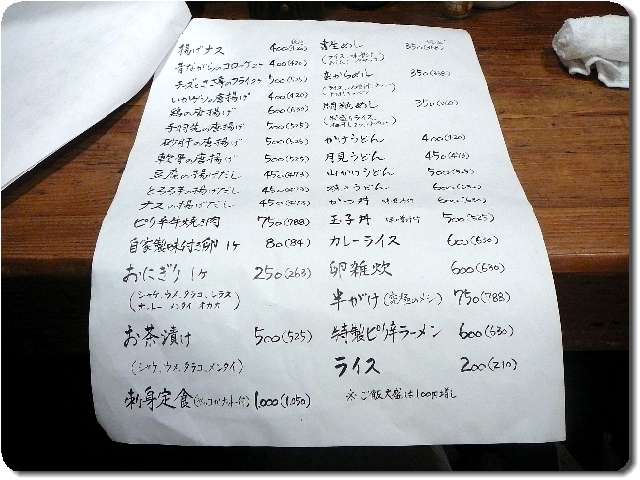 揚げナス 400(420)
昔ながらのコロッケ 400(420)
チーズとささ身のフライ 500(525)
いかゲソの唐揚げ 400(420)
鶏の唐揚げ 600(630)
手羽先の唐揚げ 500(525)
砂肝の唐揚げ 500(525)
軟骨の唐揚げ 500(525)
豆腐の揚げだし 450(473)
とろろ芋の揚げだし 450(473)
ナスの揚げだし 450(473)
ピリ辛牛焼き肉 750(788)
自家製味付き卵 1ケ 80(84)
おにぎり 1ケ 250(263)
(シャケ、ウメ、タラコ、シラス
ナットー メンタイ オカカ)
お茶漬け 500(525)
(シャケ、ウメ、タラコ、メンタイ)
刺身定食 1,000(1,050)
めし 350(368)
めし 350(368)
めし 350
かけうどん 400(420)
月見うどん 450(473)
山かけうどん 500(525)
うどん 600(630)
かつ丼 600(630)
玉子丼 500(525)
カレーライス 600(630)
卵雑炊 600(630)
半がけ(究極のメシ) 750(788)
特製ピリ辛ラーメン 600(630)
ライス 200(210)
※ご飯大盛は100円増し